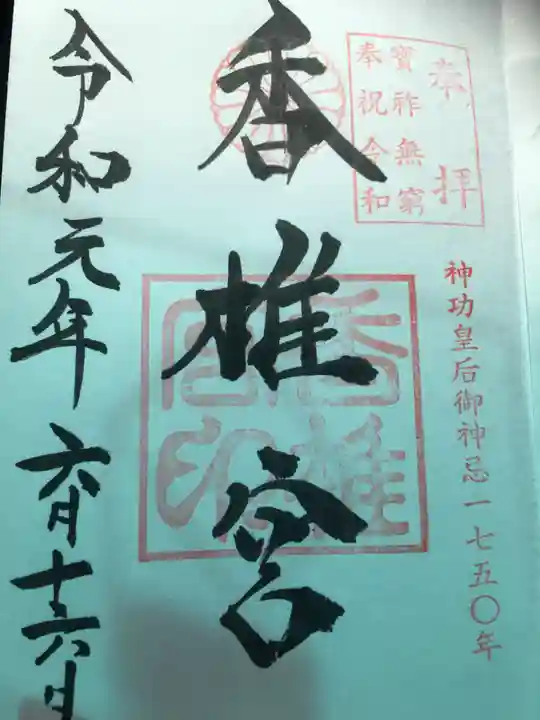 奉拝
寶祚無窮
奉祝令和
神功皇后御神忌一七五〇年
香椎宮
香椎宮印
令和元年六月十六日